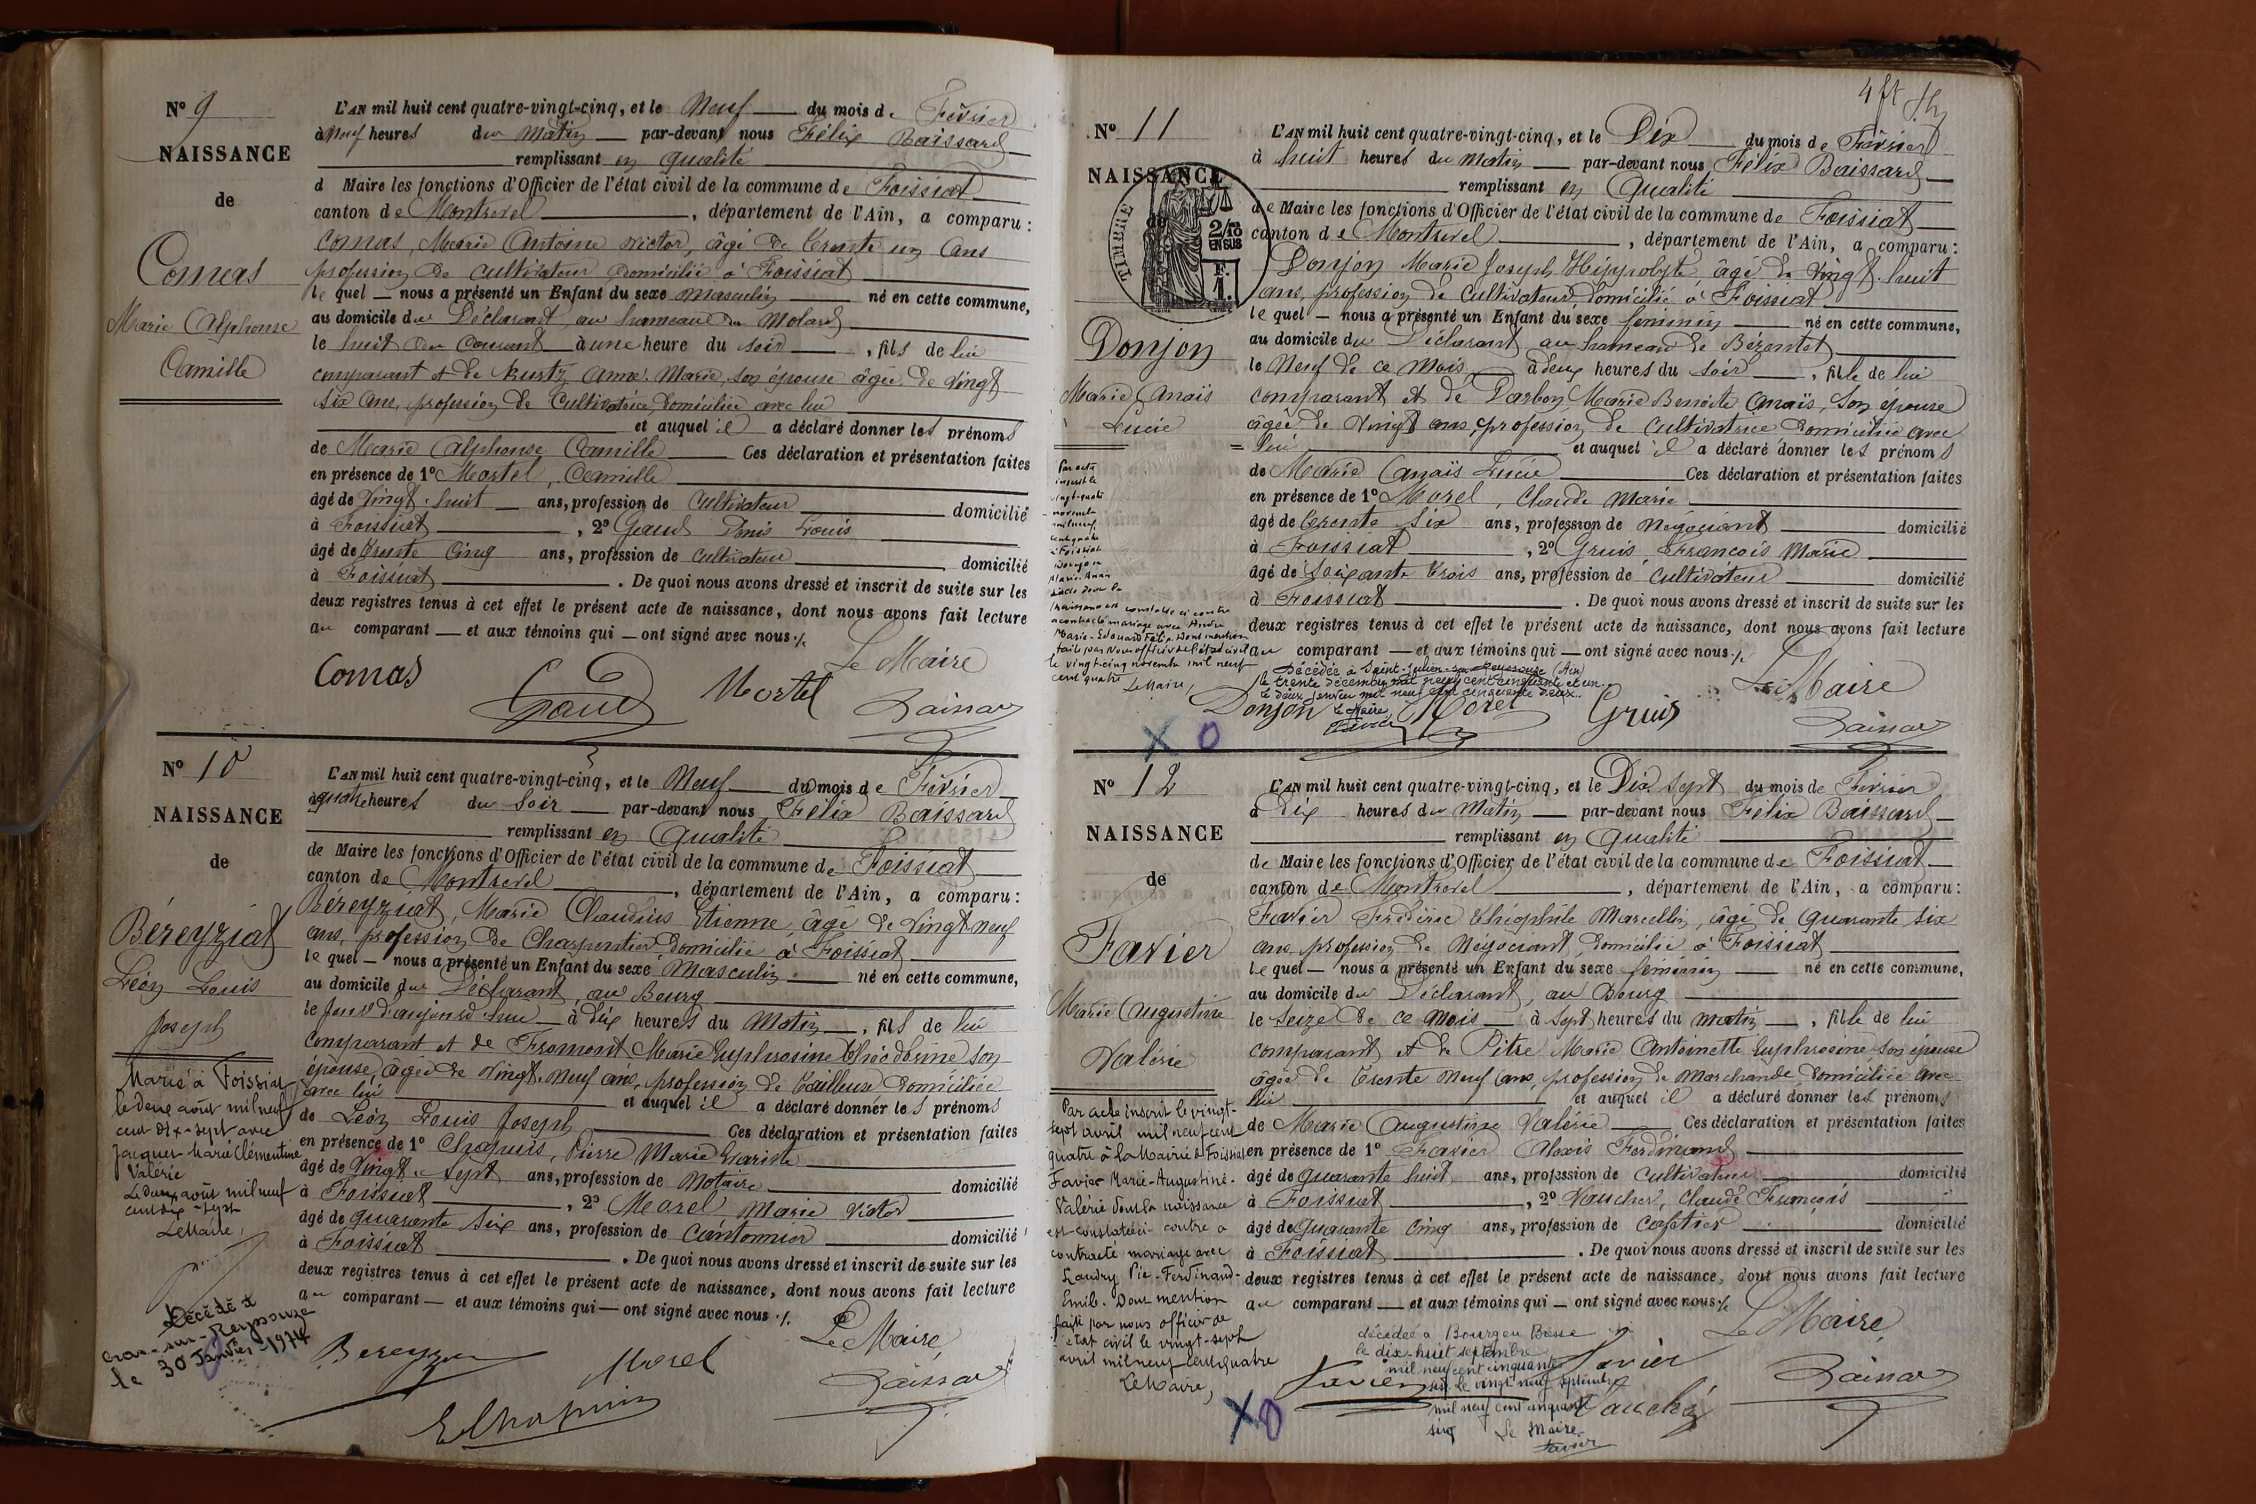 N° 9
NAISSANCE
de
Comas
Marie Alphonse
Camille
L'AN mil huit cent quatre-vingt-cinq, et le Neuf du mois de Février
à Neuf heures du Matin par-devant nous Félix Baissard
remplissant en qualité
d Maire les fonctions d'Officier de l'état civil de la commune de Foissiat
canton de Montrevel, département de l'Ain, a comparu :
Comas, Marie Antoine Victor, âgé de trente un ans
profession de cultivateur domicilié à Foissiat
le quel — nous a présenté un Enfant du sexe masculin né en cette commune,
au domicile du Déclarant, au hameau du Molard
le huit du courant à une heure du soir, fils de lui
comparant et de Kurtz Anne Marie, son épouse âgée de vingt
six ans, profession de Cultivatrice, domiciliée avec lui
et auquel il a déclaré donner les prénoms
de Marie Alphonse Camille Ces déclaration et présentation faites
en présence de 1° Mortel, Camille
âgé de Vingt-huit ans, profession de Cultivateur domicilié
à Foissiat, 2° Gaud Denis Louis
âgé de trente cinq ans, profession de cultivateur domicilié
à Foissiat. De quoi nous avons dressé et inscrit de suite sur les
deux registres tenus à cet effet le présent acte de naissance, dont nous avons fait lecture
au comparant — et aux témoins qui — ont signé avec nous ./.
Le Maire
Comas Gaud Mortel Baissard
N° 10
NAISSANCE
de
Béreyziat
Léon Louis
Joseph
Marié à Foissiat
le deux août mil neuf
cent dix-sept avec
Jacquet Marie Clémentine
Valérie
Le deux août mil neuf
cent dix-sept
Le Maire,
Décédé à
Cras-sur-Reyssouze
le 30 Janvier 1974
L'AN mil huit cent quatre-vingt-cinq, et le Neuf du mois de Février
à quatre heures du Soir par-devant nous Félix Baissard
remplissant en qualité
de Maire les fonctions d'Officier de l'état civil de la commune de Foissiat
canton de Montrevel, département de l'Ain, a comparu :
Béreyziat, Marie Claudius Etienne, âgé de vingt-neuf
ans, profession de Charpentier, domicilié à Foissiat
le quel — nous a présenté un Enfant du sexe Masculin né en cette commune,
au domicile du Déclarant, au Bourg
le Jour d'aujourd'hui à dix heures du Matin, fils de lui
comparant et de Fromont Marie Euphrosine Théodorine son
épouse, âgée de Vingt-neuf ans, profession de tailleuse domiciliée
avec lui et auquel il a déclaré donner les prénoms
de Léon Louis Joseph Ces déclaration et présentation faites
en présence de 1° Chapuis, Pierre Marie Evariste
âgé de Vingt-Sept ans, profession de Notaire domicilié
à Foissiat, 2° Morel Marie Victor
âgé de quarante six ans, profession de Cantonnier domicilié
à Foissiat. De quoi nous avons dressé et inscrit de suite sur les
deux registres tenus à cet effet le présent acte de naissance, dont nous avons fait lecture
au comparant — et aux témoins qui — ont signé avec nous ./.
Le Maire,
Morel Baissard
E. Chapuis
N° 11
NAISSANCE
de
TIMBRE
2/10
EN SUS
F.
1.
Donjon
Marie Anaïs
Lucie
Par acte
inscrit le
vingt-quatre
novembre
mil neuf
cent quatre
à Foissiat
Donjon
Marie Anaïs
Lucie dont la
naissance est constatée ci-contre
a contracté mariage avec André
Marie-Edouard Dont mention
faite par nous officier de l'état civil
le vingt-cinq novembre mil neuf
cent quatre
Le Maire,
L'AN mil huit cent quatre-vingt-cinq, et le Dix du mois de Février
à huit heures du matin par-devant nous Félix Baissard
remplissant en qualité
de Maire les fonctions d'Officier de l'état civil de la commune de Foissiat
canton de Montrevel, département de l'Ain, a comparu :
Donjon Marie Joseph Hippolyte âgé de Vingt-huit
ans, profession de Cultivateur, domicilié à Foissiat
le quel — nous a présenté un Enfant du sexe féminin né en cette commune,
au domicile du Déclarant au hameau de Bézentet
le Neuf de ce mois, à deux heures du soir, fille de lui
comparant et de Darbon Marie Benoîte Anaïs, son épouse
âgée de Vingt ans, profession de cultivatrice domiciliée avec
lui et auquel il a déclaré donner les prénoms
de Marie Anaïs Lucie Ces déclaration et présentation faites
en présence de 1° Morel, Claude Marie
âgé de trente six ans, profession de Négociant domicilié
à Foissiat, 2° Gruis François Marie
âgé de soixante trois ans, profession de Cultivateur domicilié
à Foissiat. De quoi nous avons dressé et inscrit de suite sur les
deux registres tenus à cet effet le présent acte de naissance, dont nous avons fait lecture
au comparant — et aux témoins qui — ont signé avec nous ./.
Décédée à Saint-Julien-sur-Reyssouze (Ain)
le trente décembre mil neuf cent cinquante et un.
Le deux janvier mil neuf cent cinquante deux.
Le Maire
Favier
Le Maire
Donjon Morel Gruis Baissard
X O
N° 12
NAISSANCE
de
Favier
Marie Augustine
Valérie
Par acte inscrit le vingt-
sept avril mil neuf cent
quatre à la Mairie de Foissiat
Favier Marie-Augustine-
Valérie dont la naissance
est constatée ci-contre a
contracté mariage avec
Landry Pie-Ferdinand-
Emile. Dont mention
faite par nous officier de
l'état civil le vingt-sept
avril mil neuf cent quatre
Le Maire,
L'AN mil huit cent quatre-vingt-cinq, et le Dix sept du mois de Février
à Dix heures du Matin par-devant nous Félix Baissard
remplissant en qualité
de Maire les fonctions d'Officier de l'état civil de la commune de Foissiat
canton de Montrevel, département de l'Ain, a comparu :
Favier Frédéric Théophile Marcellin, âgé de quarante six
ans, profession de Négociant, domicilié à Foissiat
le quel — nous a présenté un Enfant du sexe féminin né en cette commune,
au domicile du Déclarant, au Bourg
le seize de ce mois à sept heures du matin, fille de lui
comparant et de Pitre Marie Antoinette Euphrosine son épouse
âgée de trente neuf ans, profession de Marchande, domiciliée avec
lui et auquel il a déclaré donner les prénoms
de Marie Augustine Valérie Ces déclaration et présentation faites
en présence de 1° Favier Alexis Ferdinand
âgé de quarante huit ans, profession de Cultivateur domicilié
à Foissiat, 2° Vaucher, Claude François
âgé de quarante cinq ans, profession de cafetier domicilié
à Foissiat. De quoi nous avons dressé et inscrit de suite sur les
deux registres tenus à cet effet le présent acte de naissance, dont nous avons fait lecture
au comparant — et aux témoins qui — ont signé avec nous ./.
Le Maire,
décédée à Bourg en Bresse
le dix-huit septembre
mil neuf cent cinquante
six. Le vingt neuf septembre
mil neuf cent cinquante
six Le Maire
Favier
Favier Favier Vaucher Baissard
X O